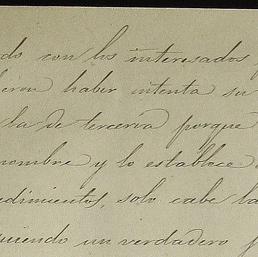 do con los interesados
haber intenta su
la de tercería porque
nombre y lo establece
edimientos, solo cabe la
uiendo un verdadero